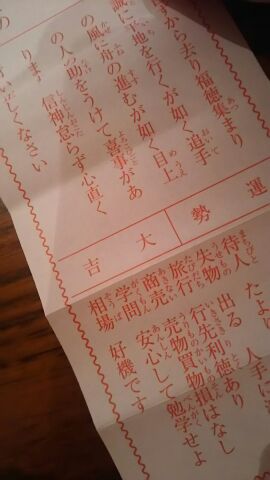 から去り福徳集まり
地を行くが如く追手
の風に舟の進むが如く目上
の人の助をうけて喜事があ
りま
信神怠らず心直く
しくなさい
運勢
大吉
待人 たよ
失物 出る 人手に
旅行 行先利徳あり
商売 売物買物損はなし
学問 安心して勉学せよ
相場 好機です